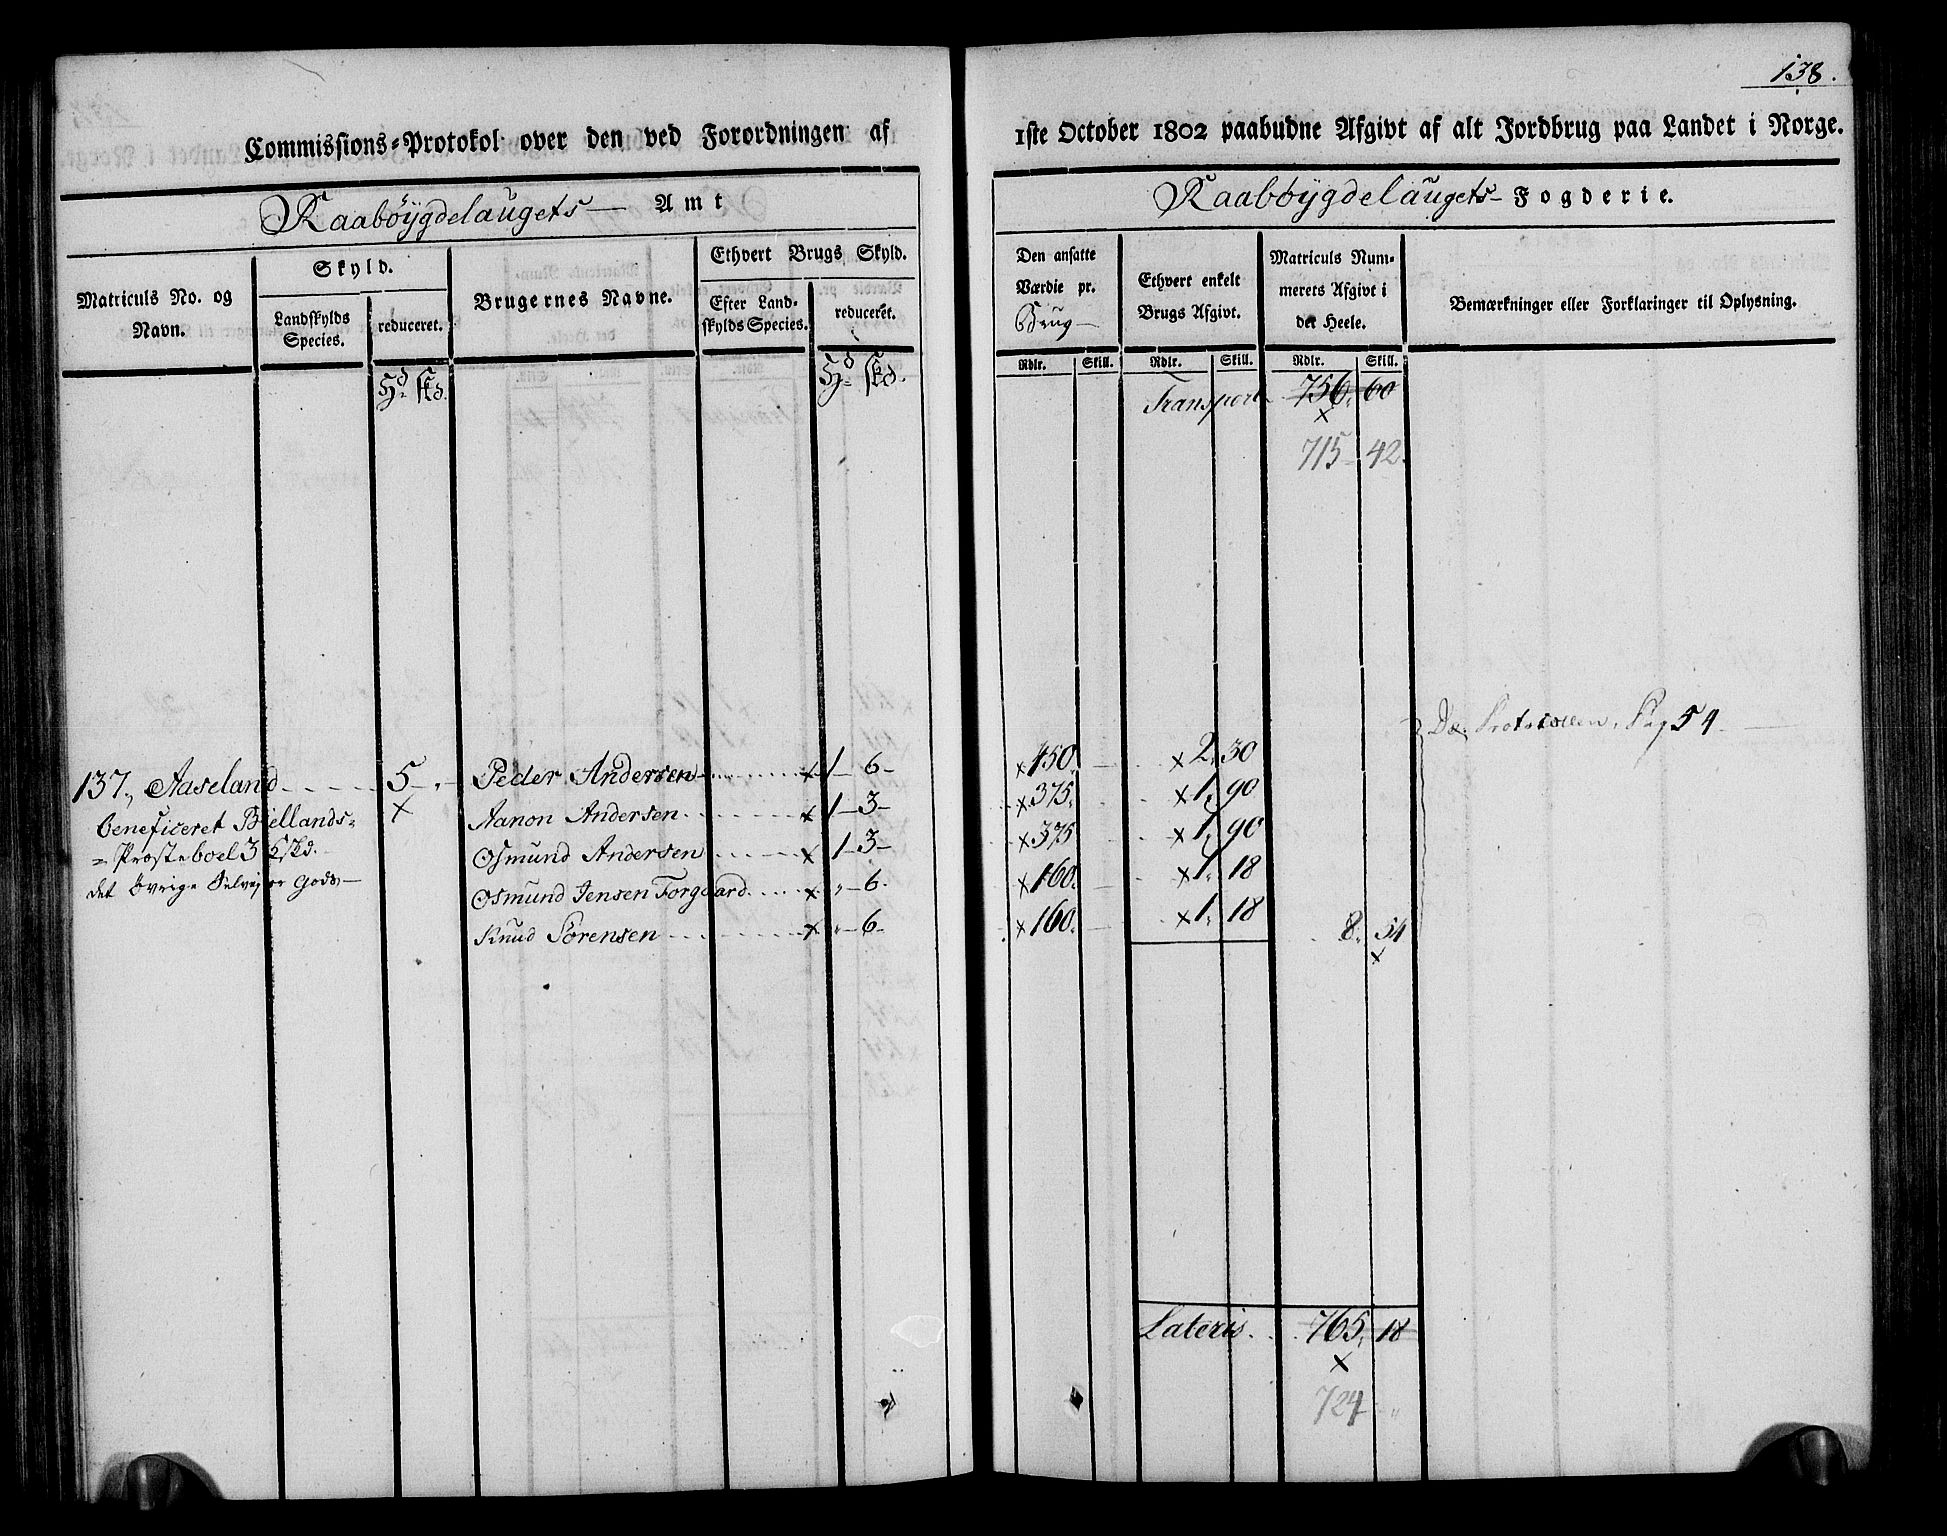 138.
Commissions-Protokol over den ved Forordningen af
1ste October 1802 paabudne Afgivt af alt Jordbrug paa Landet i Norge.
Raabøygdelaugets Amt
Raabøygdelaugets Fogderie.
Matriculs No. og Navn.
Skyld.
Landskylds Species.
reduceret.
Brugernes Navne.
Ethvert Brugs Skyld.
Efter Landskylds Species.
reduceret.
Den ansatte Værdie pr. Brug
Ethvert enkelt Brugs Afgivt.
Matriculs Nummerets Afgivt i det Heele.
Bemærkninger eller Forklaringer til Oplysning.
Rdlr. Skill. Rdlr. Skill. Rdlr. Skill.
Hd skd. Hd skd.
Transport 756. 60
715 42.
Protocollen, Pag 54
137., Aaseland 5 Peder Andersen 1 - 6 - 450. 2. 30
beneficeret Biellands- Aanon Andersen 1 - 3 - 375. 1. 90
= Prosteboel 3 Osmund Andersen 1 - 3 - 375 1. 90
det øvrige Selveier Gods Osmund Jensen Torgaard " - 6 - 160. 1. 18
Knud Sørensen " - 6 - 160. 1. 18 8. 54
Lateris 765. 18
724 "